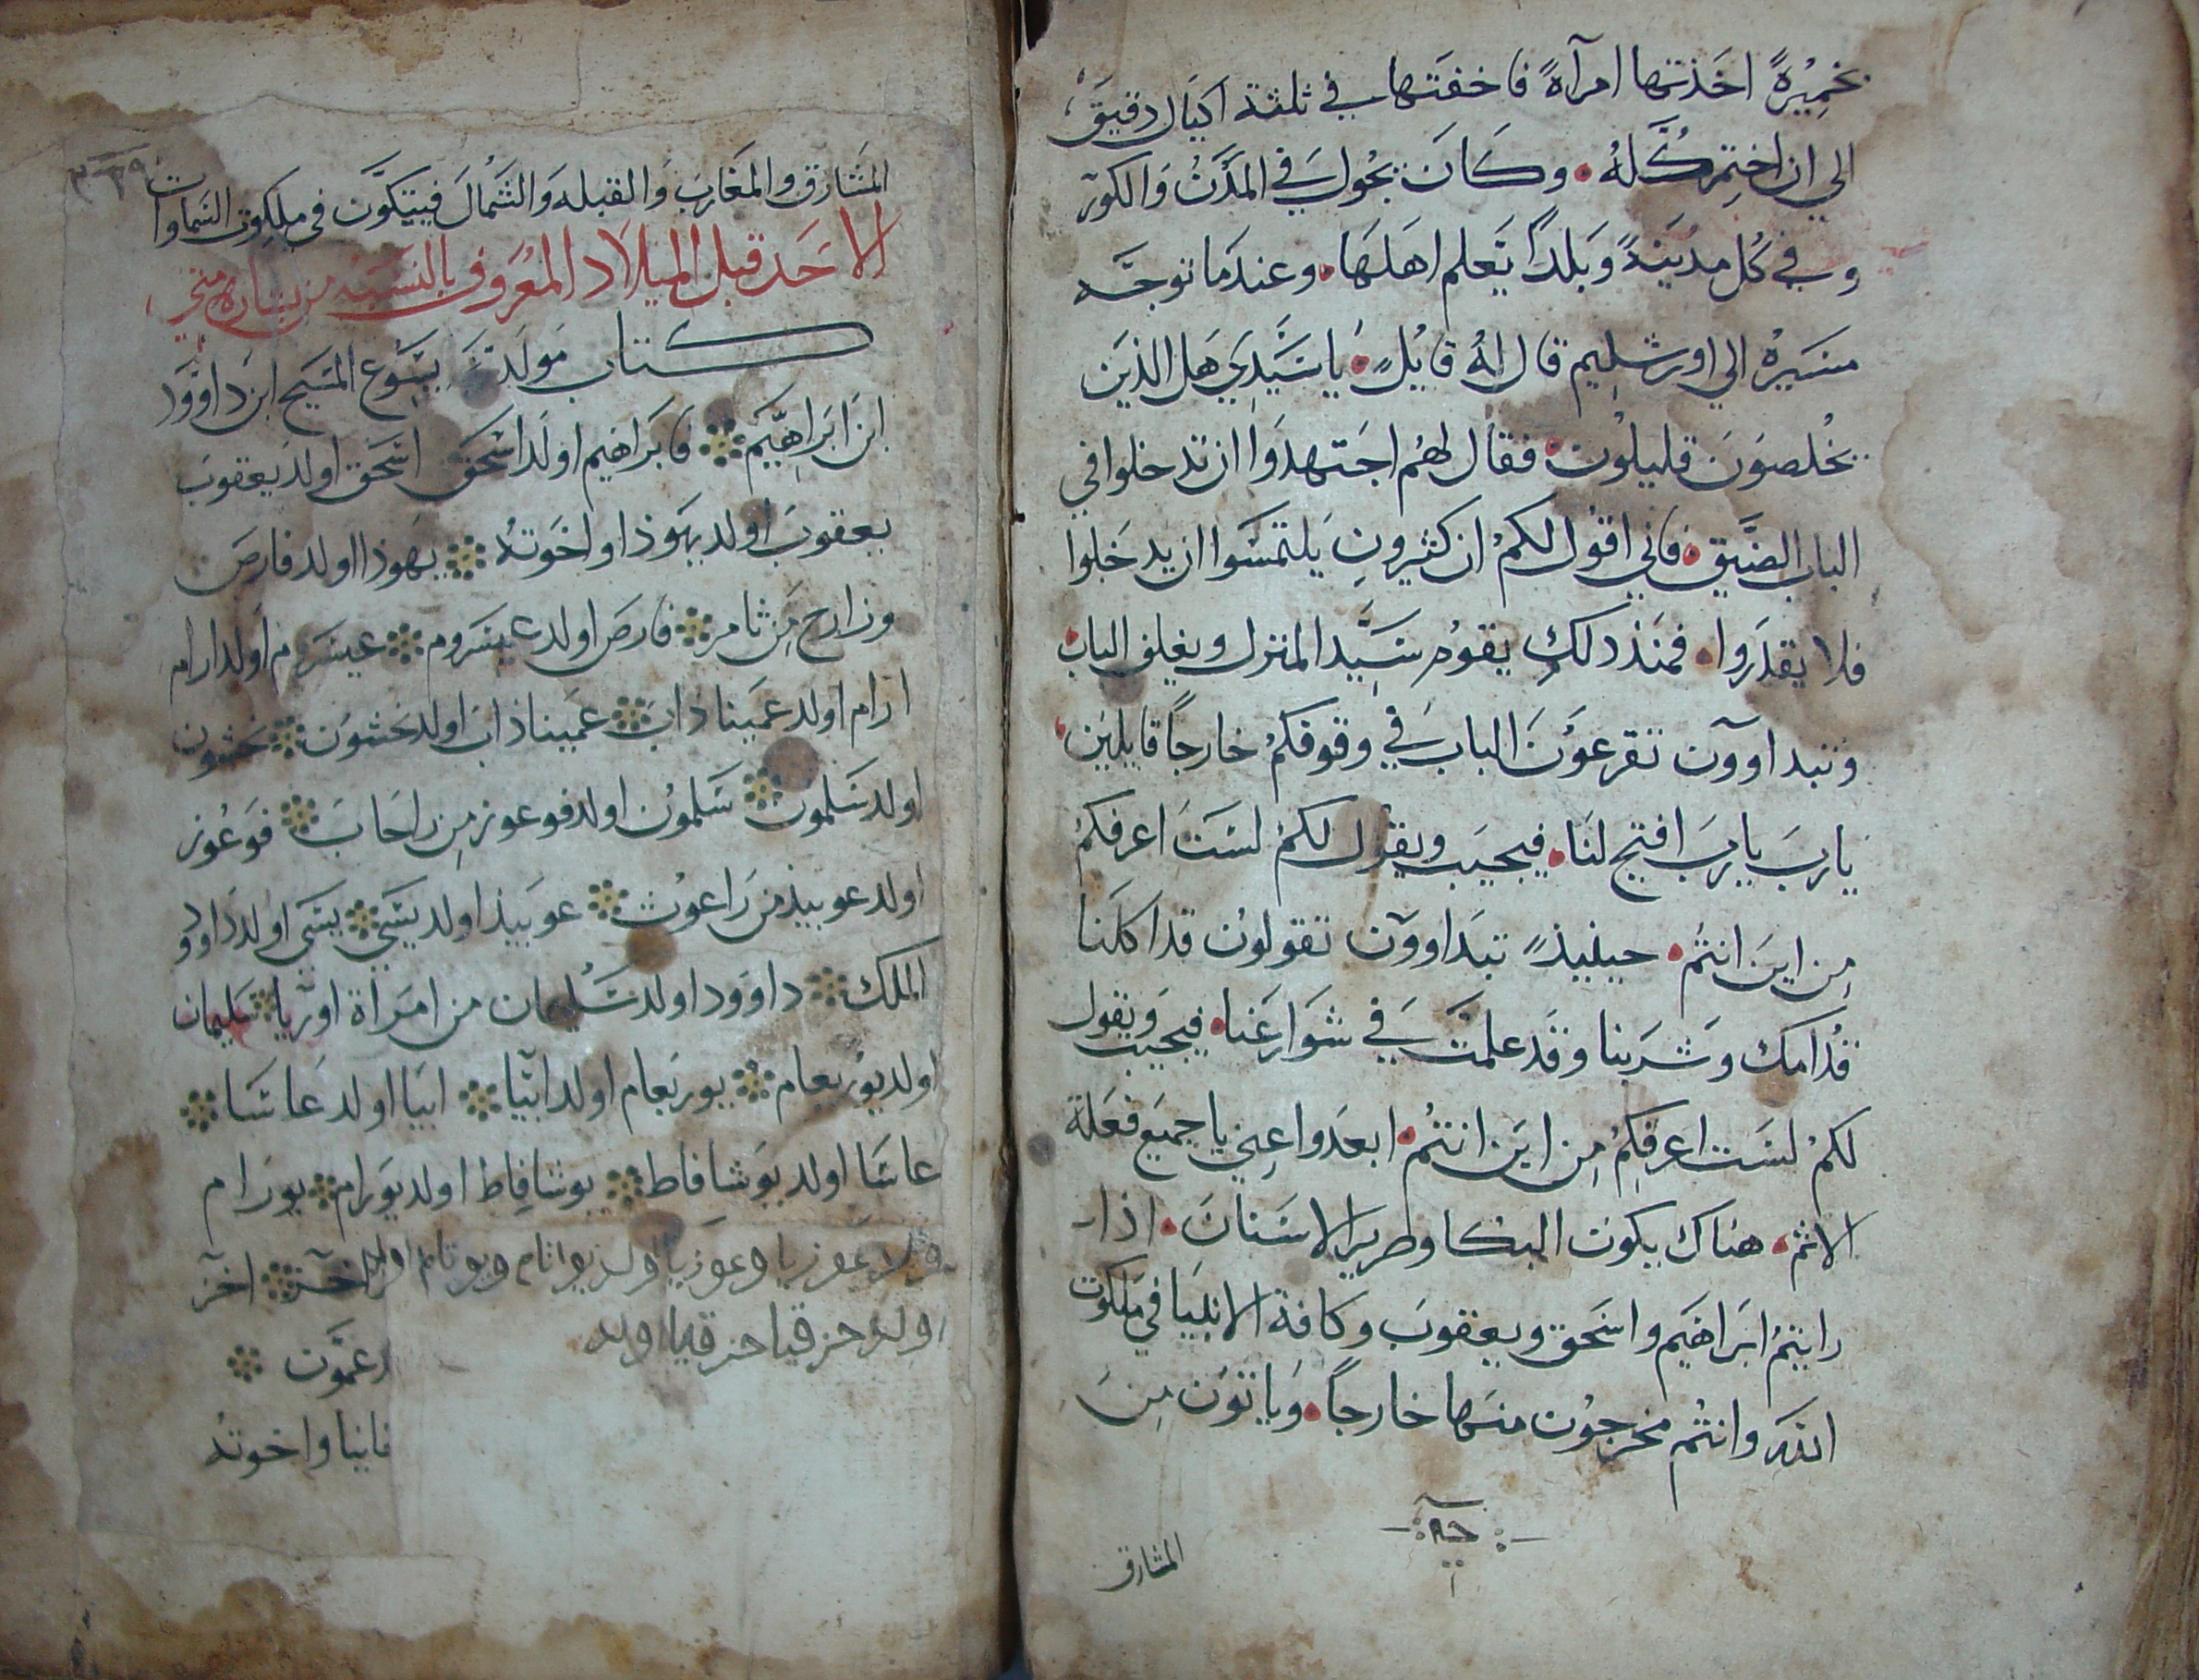 بخميرةً اخذتها امرآةً فاخفتها في ثلثة اكيال دقيق
الي ان اختمر كله وكان يجول في المدن والكور
وفي كل مدينةً وبلداً يعلم اهلها وعندما توجه
مسيره الي اورشليم قال له قايل يا سيدي هل الذين
يخلصون قليلون فقال لهم اجتهدوا ان تدخلوا في
الباب الضيق فاني اقول لكم ان كثيرون يلتمسوا ان يدخلوا
فلا يقدروا فمنذ ذلك يقوم سيد المنزل ويغلق الباب
وتبداوون تقرعون الباب في وقوفكم خارجاً قايلين
يارب يارب افتح لنا فيجيب ويقول لكم لست اعرفكم
من اين انتم حينيذٍ تبداوون تقولون قد اكلنا
قدامك وشربنا وقد علمت في شوارعنا فيجيب ويقول
لكم لست اعرفكم من اين انتم ابعدوا عني يا جميع فعلة
الاثم هناك يكون البكا وصرير الاسنان اذا
رايتم ابراهيم واسحق ويعقوب وكافة الانبيا في ملكوت
الله وانتم مخرجون منها خارجاً وياتون من
المشارق
المشارق والمغارب والقبله والشمال فيتيكون في ملكوت السماوات
الاحد قبل الميلاد المعروف بالنسبه من بشارة متي
كتاب مولد يسوع المسيح ابن داوود
ابن ابراهيم فابراهيم اولد اسحق اسحق اولد يعقوب
يعقوب اولد يهوذا واخوته يهوذا اولد فارص
وزارح من ثامر فارص اولد عيسروم عيسرم اولد ارام
ارام اولد عميناذاب عميناذاب اولد نخشون نخشون
اولد سلمون سلمون اولد فوعوز من راحاب فوعوز
اولد عوبيذ من راعوث عوبيذ اولد يسي يسي اولد داوود
الملك داوود اولد سليمان من امراة اوريا سليمان
اولد يوربعام يوربعام اولد ابيا ابيا اولد عاسا
عاسا اولد يوشافاط يوشافاط اولد يورام يورام
ولد عوزيا وعوزيا ولد يواثام ويوثام اولد اخز اخز
اولد حزقيا حزقيا اولد
عمون
واخوته